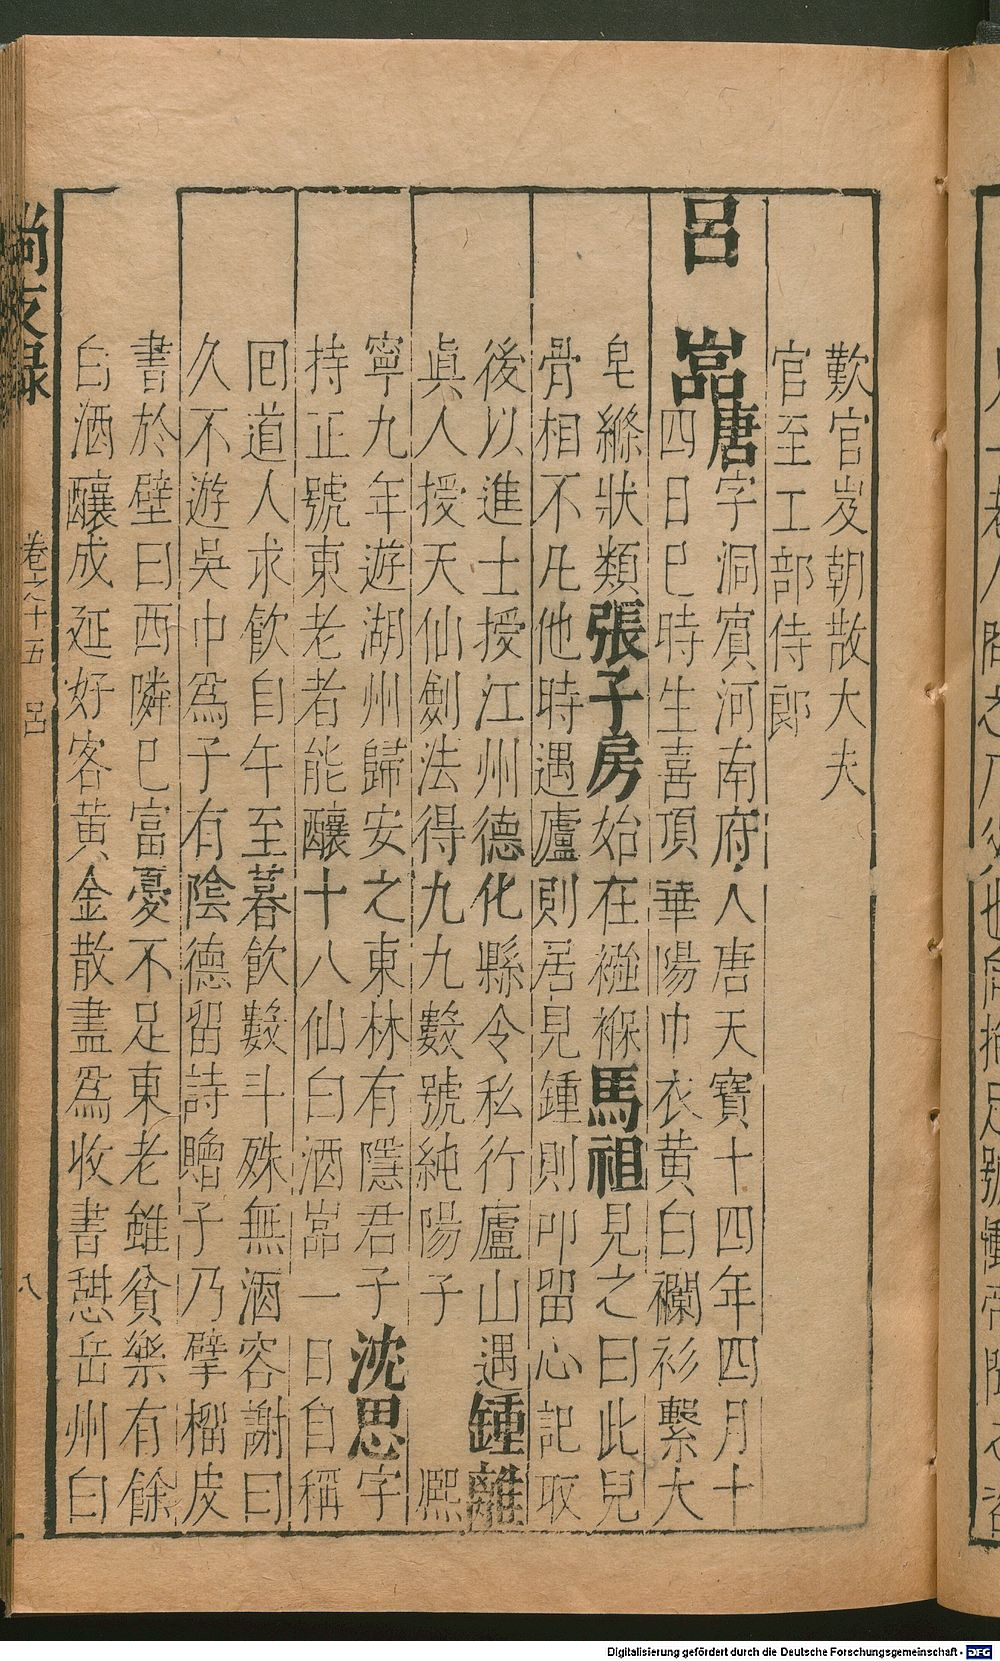 歎官岌朝散大夫
官至工部侍郎
呂嵓唐字洞賓河南府人唐天寶十四年四月十
四日巳時生喜頂華陽巾衣黃白襴衫繫大
皂縧狀類張子房始在襁褓馬祖見之曰此兒
骨相不凡他時遇廬則居見鍾則叩留心記取
後以進士授江州德化縣令私行廬山遇鍾離
眞人授天仙劍法得九九數號純陽子 熙
寧九年遊湖州歸安之東林有隱君子沈思字
持正號東老者能釀十八仙白酒嵓一日自稱
回道人求飲自午至暮飲數斗殊無酒容謝曰
久不遊吳中爲子有陰德留詩贈子乃擘榴皮
書於壁曰西隣巳富憂不足東老雖貧樂有餘
白酒釀成延好客黃金散盡爲收書憇岳州白
尚友錄 卷之十五 呂 八
Digitalisierung gefördert durch die Deutsche Forschungsgemeinschaft - DFG